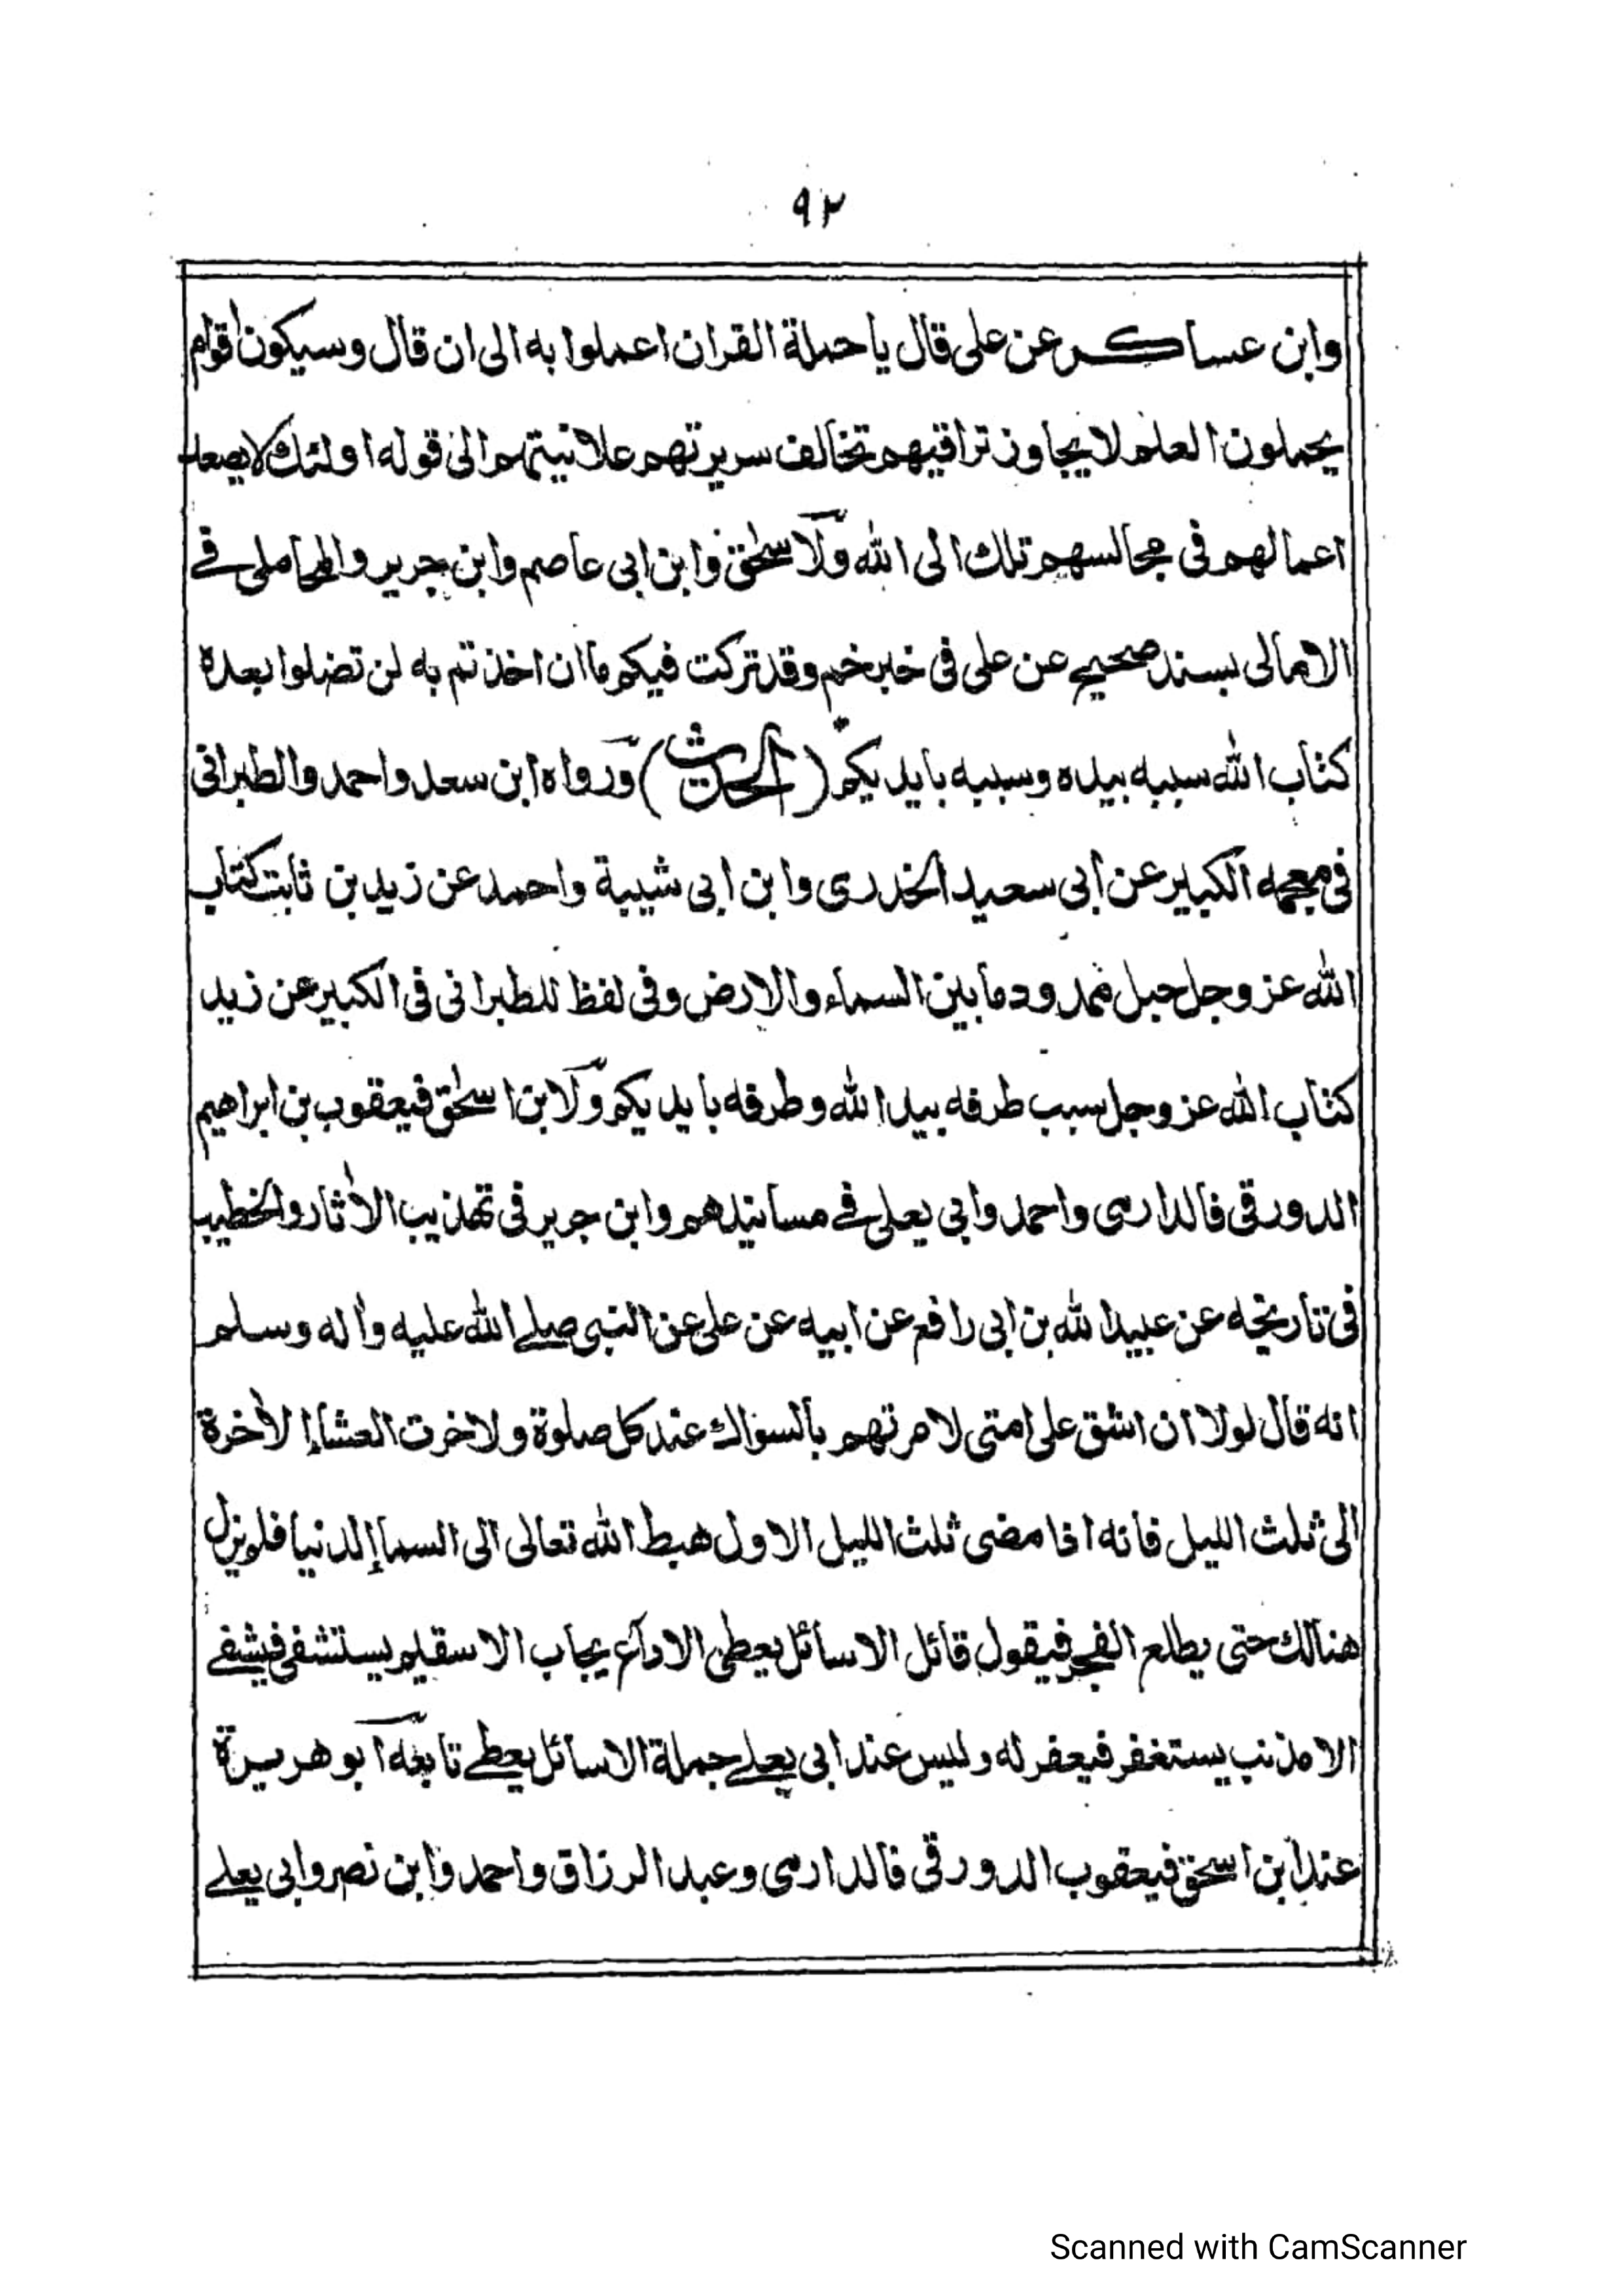 ٩٢
وابن عساكر عن على قال يا حملة القران اعملوا به الى ان قال وسيكون اقوام
يحملون العلم لا يجاوز تراقيهم تخالف سريرتهم علانيتهم الى قوله اولئك لا يصعد
اعمالهم فى مجالسهم تلك الى الله ولاسحٰق وابن ابى عاصم وابن جرير والمحاملى فے
الامالى بسند صحيح عن على فى خبر خم وقد تركت فيكم ما ان اخذتم به لن تضلوا بعدة
كتاب الله سببه بيده وسببه بايديكم (الحديث) ورواه ابن سعد واحمد والطبرانى
فى معجمه الكبير عن ابى سعيد الخدرى وابن ابى شيبة واحمد عن زيد بن ثابت كتاب
الله عز وجل حبل ممدود ما بين السماء والارض وفى لفظ للطبرانى فى الكبير عن زيد
كتاب الله عز وجل سبب طرفه بيد الله وطرفه بايديكم ولابن اسحٰق فيعقوب بن ابراهيم
الدورقى فالدارمى واحمد وابى يعلى فے مسانيدهم وابن جرير فى تهذيب الاٰثار والخطيب
فى تاريخه عن عبيد الله بن ابى رافع عن ابيه عن على عن النبى صلے الله عليه واٰله وسلم
انه قال لولا ان اشق على امتى لامرتهم بالسواك عند كل صلوة ولاخرت العشاء الاٰخرة
الى ثلث الليل فانه اذا مضى ثلث الليل الاول هبط الله تعالى الى السماء الدنيا فلم يزل
هنالك حتى يطلع الفجر فيقول قائل الا سائل يعطى الا داع يجاب الا سقيم يستشفى فيشفے
الا مذنب يستغفر فيغفر له وليس عند ابى يعلے جملة الا سائل يعطے تابعه ابو هريرة
عند ابن اسحٰق فيعقوب الدورقى فالدارمى وعبد الرزاق واحمد وابن نصر وابى يعلے
Scanned with CamScanner